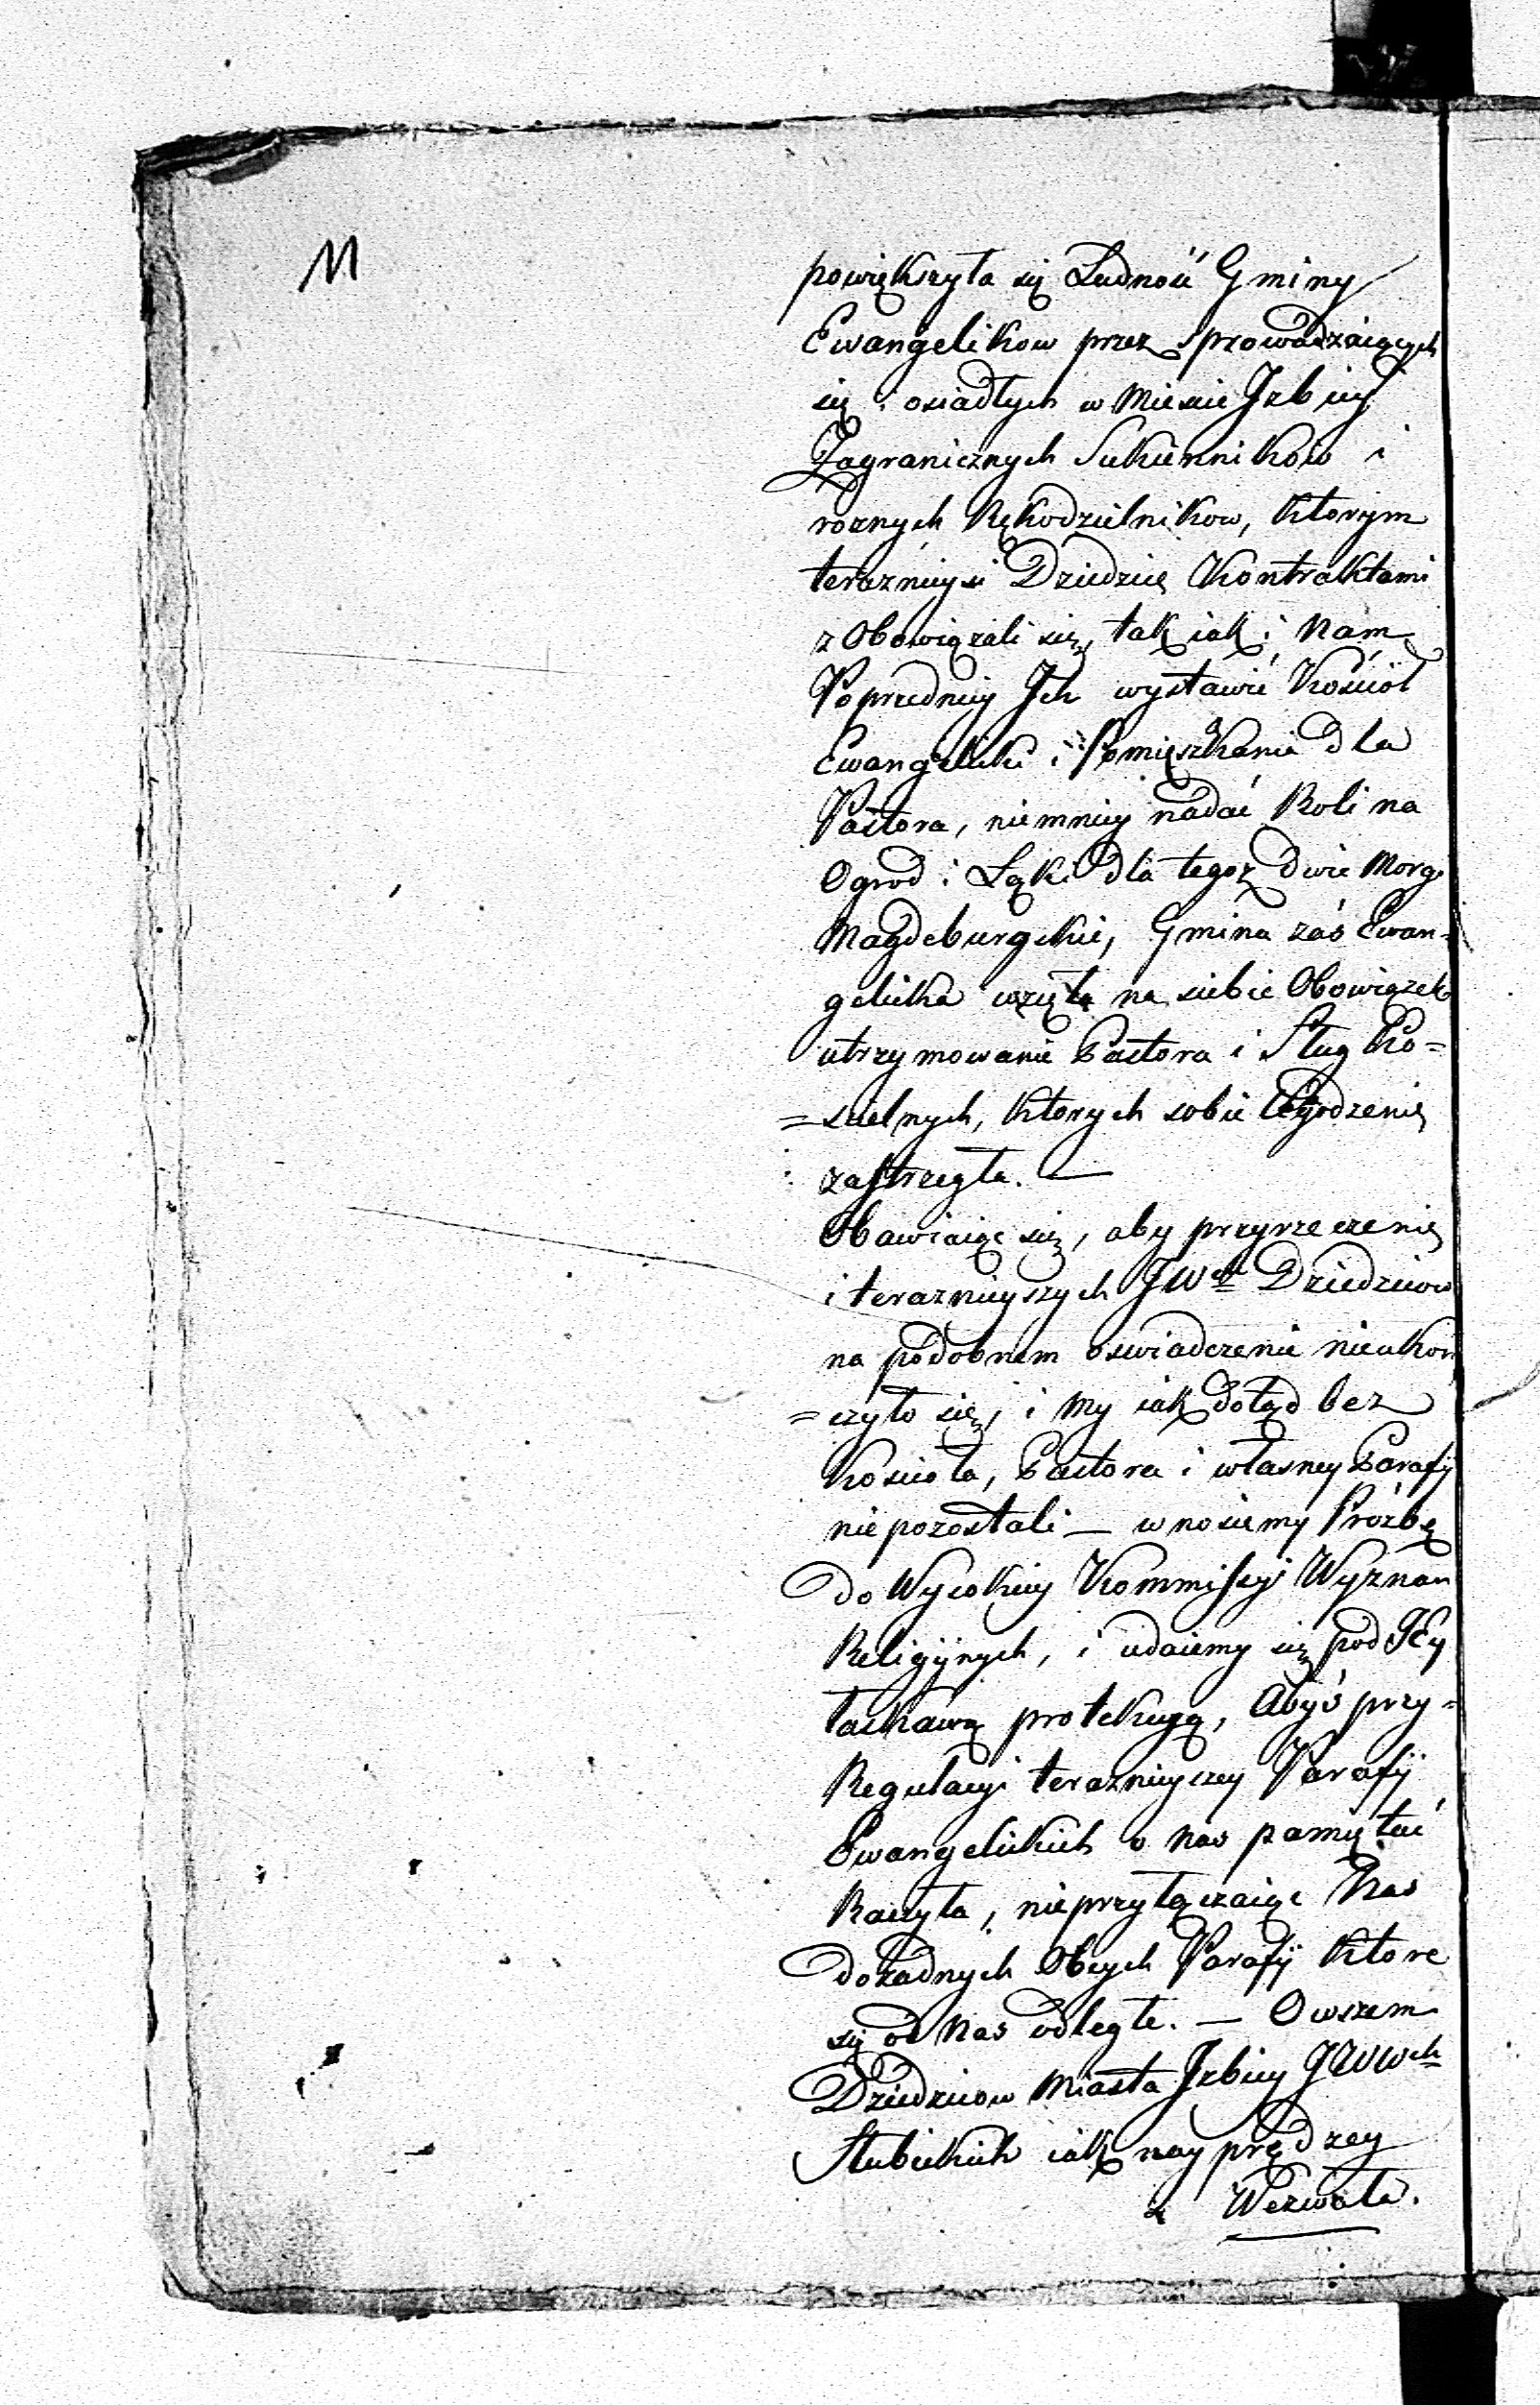 11
powiększyła się Ludność Gminy
Ewangelikow przez sprowadzaiących
się i osiadłych w Miescie Izbicy
Zagranicznych Sukiennikow i
roznych Rękodzielnikow, ktorym
teraznieysi Dziedzice Kontraktami
zobowiązali się, tak iak i Nam
Poprzednicy Ich wystawić Kościół
Ewangelicki i Pomięszkanie dla
Pastora, niemniey nadać Roli na
Ogrod i Łąki dla tegoż dwie Morgi
Magdeburgskie, Gmina zaś Ewan-
gelicka wzięła na siebie Obowiązek
utrzymowanie Pastora i Sług Ko=
=scielnych, ktorych sobie Ugodzenie
zastrzegła. —
Obawiaiąc się, aby przyrzeczenie
i teraznieyszych JWch Dziedzicow
na podobnem oswiadczenie nieukoń
=czyło się, i my iak dotąd bez
Kościoła, Pastora i własney Parafij
niepozostali — wnosiemy Prozbę
do Wysokiey Kommissyi Wyznań
Religijnych, i udaiemy się pod JEy
łaskawą protekcyą, Abyś przy=
Regulacyi teraznieyszey Parafij
Ewangelickich o nas pamiętać
Raczyła, nieprzyłączaiąc Nas
dożadnych Obcych Parafij ktore
są od Nas odległe. — Owszem
Dziedzicow Miasta Izbicy JWWch
Słubickich iak nayprędzey
Wezwała.